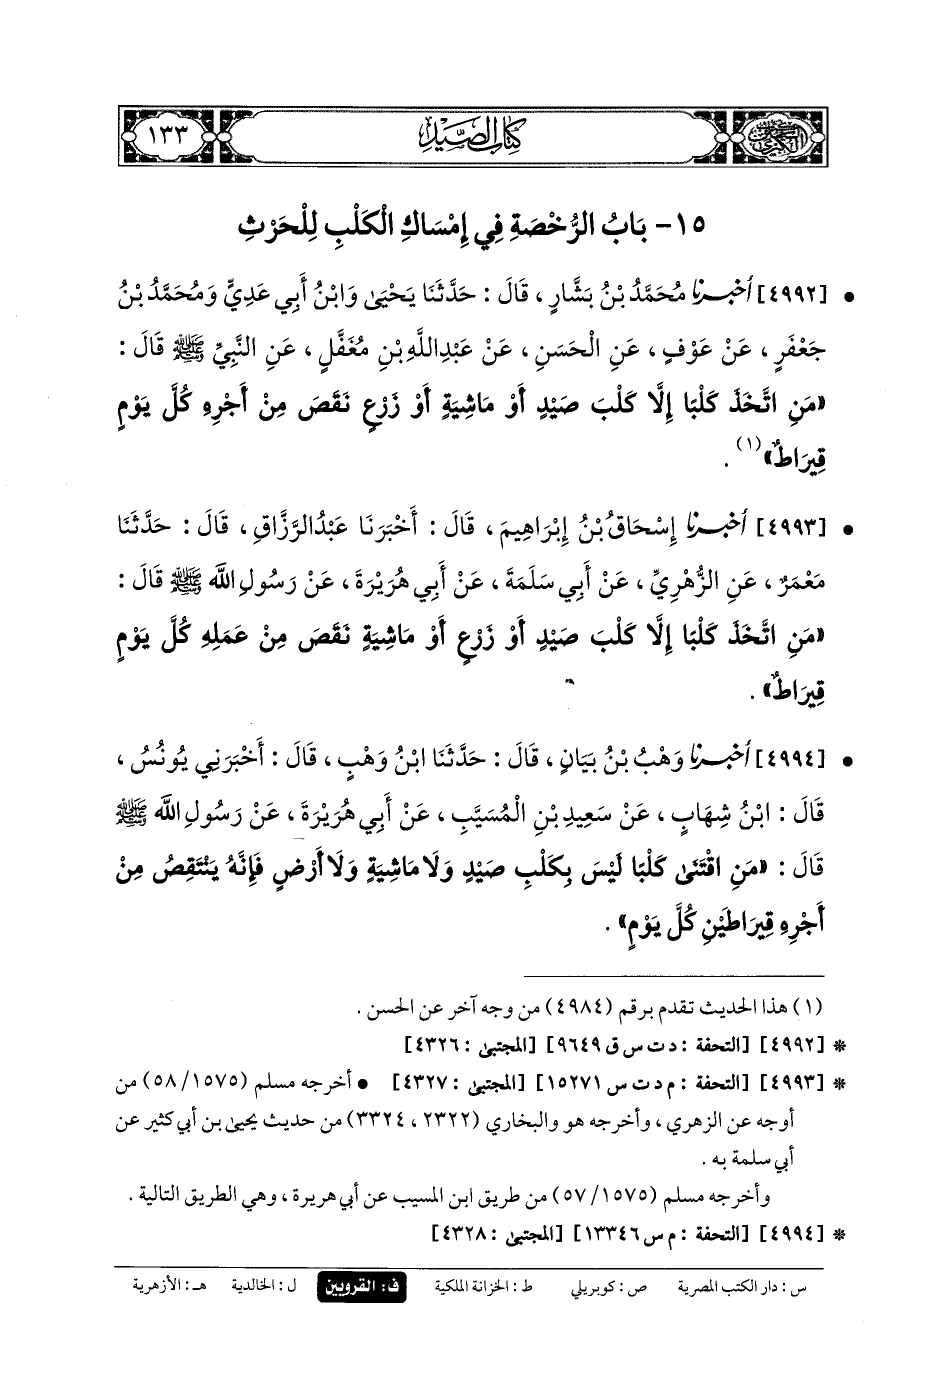 السنن الكبرى
كتاب الصيد
١٣٣
١٥- بَابُ الرُّخْصَةِ فِي إِمْسَاكِ الْكَلْبِ لِلْحَرْثِ
• [٤٩٩٢] أَخْبَرَنَا مُحَمَّدُ بْنُ بَشَّارٍ، قَالَ: حَدَّثَنَا يَحْيَىٰ وَابْنُ أَبِي عَدِيٍّ وَمُحَمَّدُ بْنُ
جَعْفَرٍ، عَنْ عَوْفٍ، عَنِ الْحَسَنِ، عَنْ عَبْدِ اللَّهِ بْنِ مُغَفَّلٍ، عَنِ النَّبِيِّ ﷺ قَالَ:
«مَنِ اتَّخَذَ كَلْبًا إِلَّا كَلْبَ صَيْدٍ أَوْ مَاشِيَةٍ أَوْ زَرْعٍ نَقَصَ مِنْ أَجْرِهِ كُلَّ يَوْمٍ
قِيرَاطٌ»(١).
• [٤٩٩٣] أَخْبَرَنَا إِسْحَاقُ بْنُ إِبْرَاهِيمَ، قَالَ: أَخْبَرَنَا عَبْدُ الرَّزَّاقِ، قَالَ: حَدَّثَنَا
مَعْمَرٌ، عَنِ الزُّهْرِيِّ، عَنْ أَبِي سَلَمَةَ، عَنْ أَبِي هُرَيْرَةَ، عَنْ رَسُولِ اللَّه ﷺ قَالَ:
«مَنِ اتَّخَذَ كَلْبًا إِلَّا كَلْبَ صَيْدٍ أَوْ زَرْعٍ أَوْ مَاشِيَةٍ نَقَصَ مِنْ عَمَلِهِ كُلَّ يَوْمٍ
قِيرَاطٌ».
• [٤٩٩٤] أَخْبَرَنَا وَهْبُ بْنُ بَيَانٍ، قَالَ: حَدَّثَنَا ابْنُ وَهْبٍ، قَالَ: أَخْبَرَنِي يُونُسُ،
قَالَ: ابْنُ شِهَابٍ، عَنْ سَعِيدِ بْنِ الْمُسَيَّبِ، عَنْ أَبِي هُرَيْرَةَ، عَنْ رَسُولِ اللَّه ﷺ
قَالَ: «مَنِ اقْتَنَىٰ كَلْبًا لَيْسَ بِكَلْبِ صَيْدٍ وَلَا مَاشِيَةٍ وَلَا أَرْضٍ فَإِنَّهُ يَنْتَقِصُ مِنْ
أَجْرِهِ قِيرَاطَيْنِ كُلَّ يَوْمٍ».
(١) هذا الحديث تقدم برقم (٤٩٨٤) من وجه آخر عن الحسن.
* [٤٩٩٢] [التحفة: د ت س ق ٩٦٤٩] [المجتبىٰ: ٤٣٢٦]
* [٤٩٩٣] [التحفة: م د ت س ١٥٢٧١] [المجتبىٰ: ٤٣٢٧] • أخرجه مسلم (١٥٧٥/ ٥٨) من
أوجه عن الزهري، وأخرجه هو والبخاري (٢٣٢٢، ٣٣٢٤) من حديث يحيىٰ بن أبي كثير عن
أبي سلمة به.
وأخرجه مسلم (١٥٧٥/ ٥٧) من طريق ابن المسيب عن أبي هريرة، وهي الطريق التالية.
* [٤٩٩٤] [التحفة: م س ١٣٣٤٦] [المجتبىٰ: ٤٣٢٨]
س: دار الكتب المصرية ص: كوبريلي ط: الخزانة الملكية ف: القرويين ل: الخالدية هـ: الأزهرية